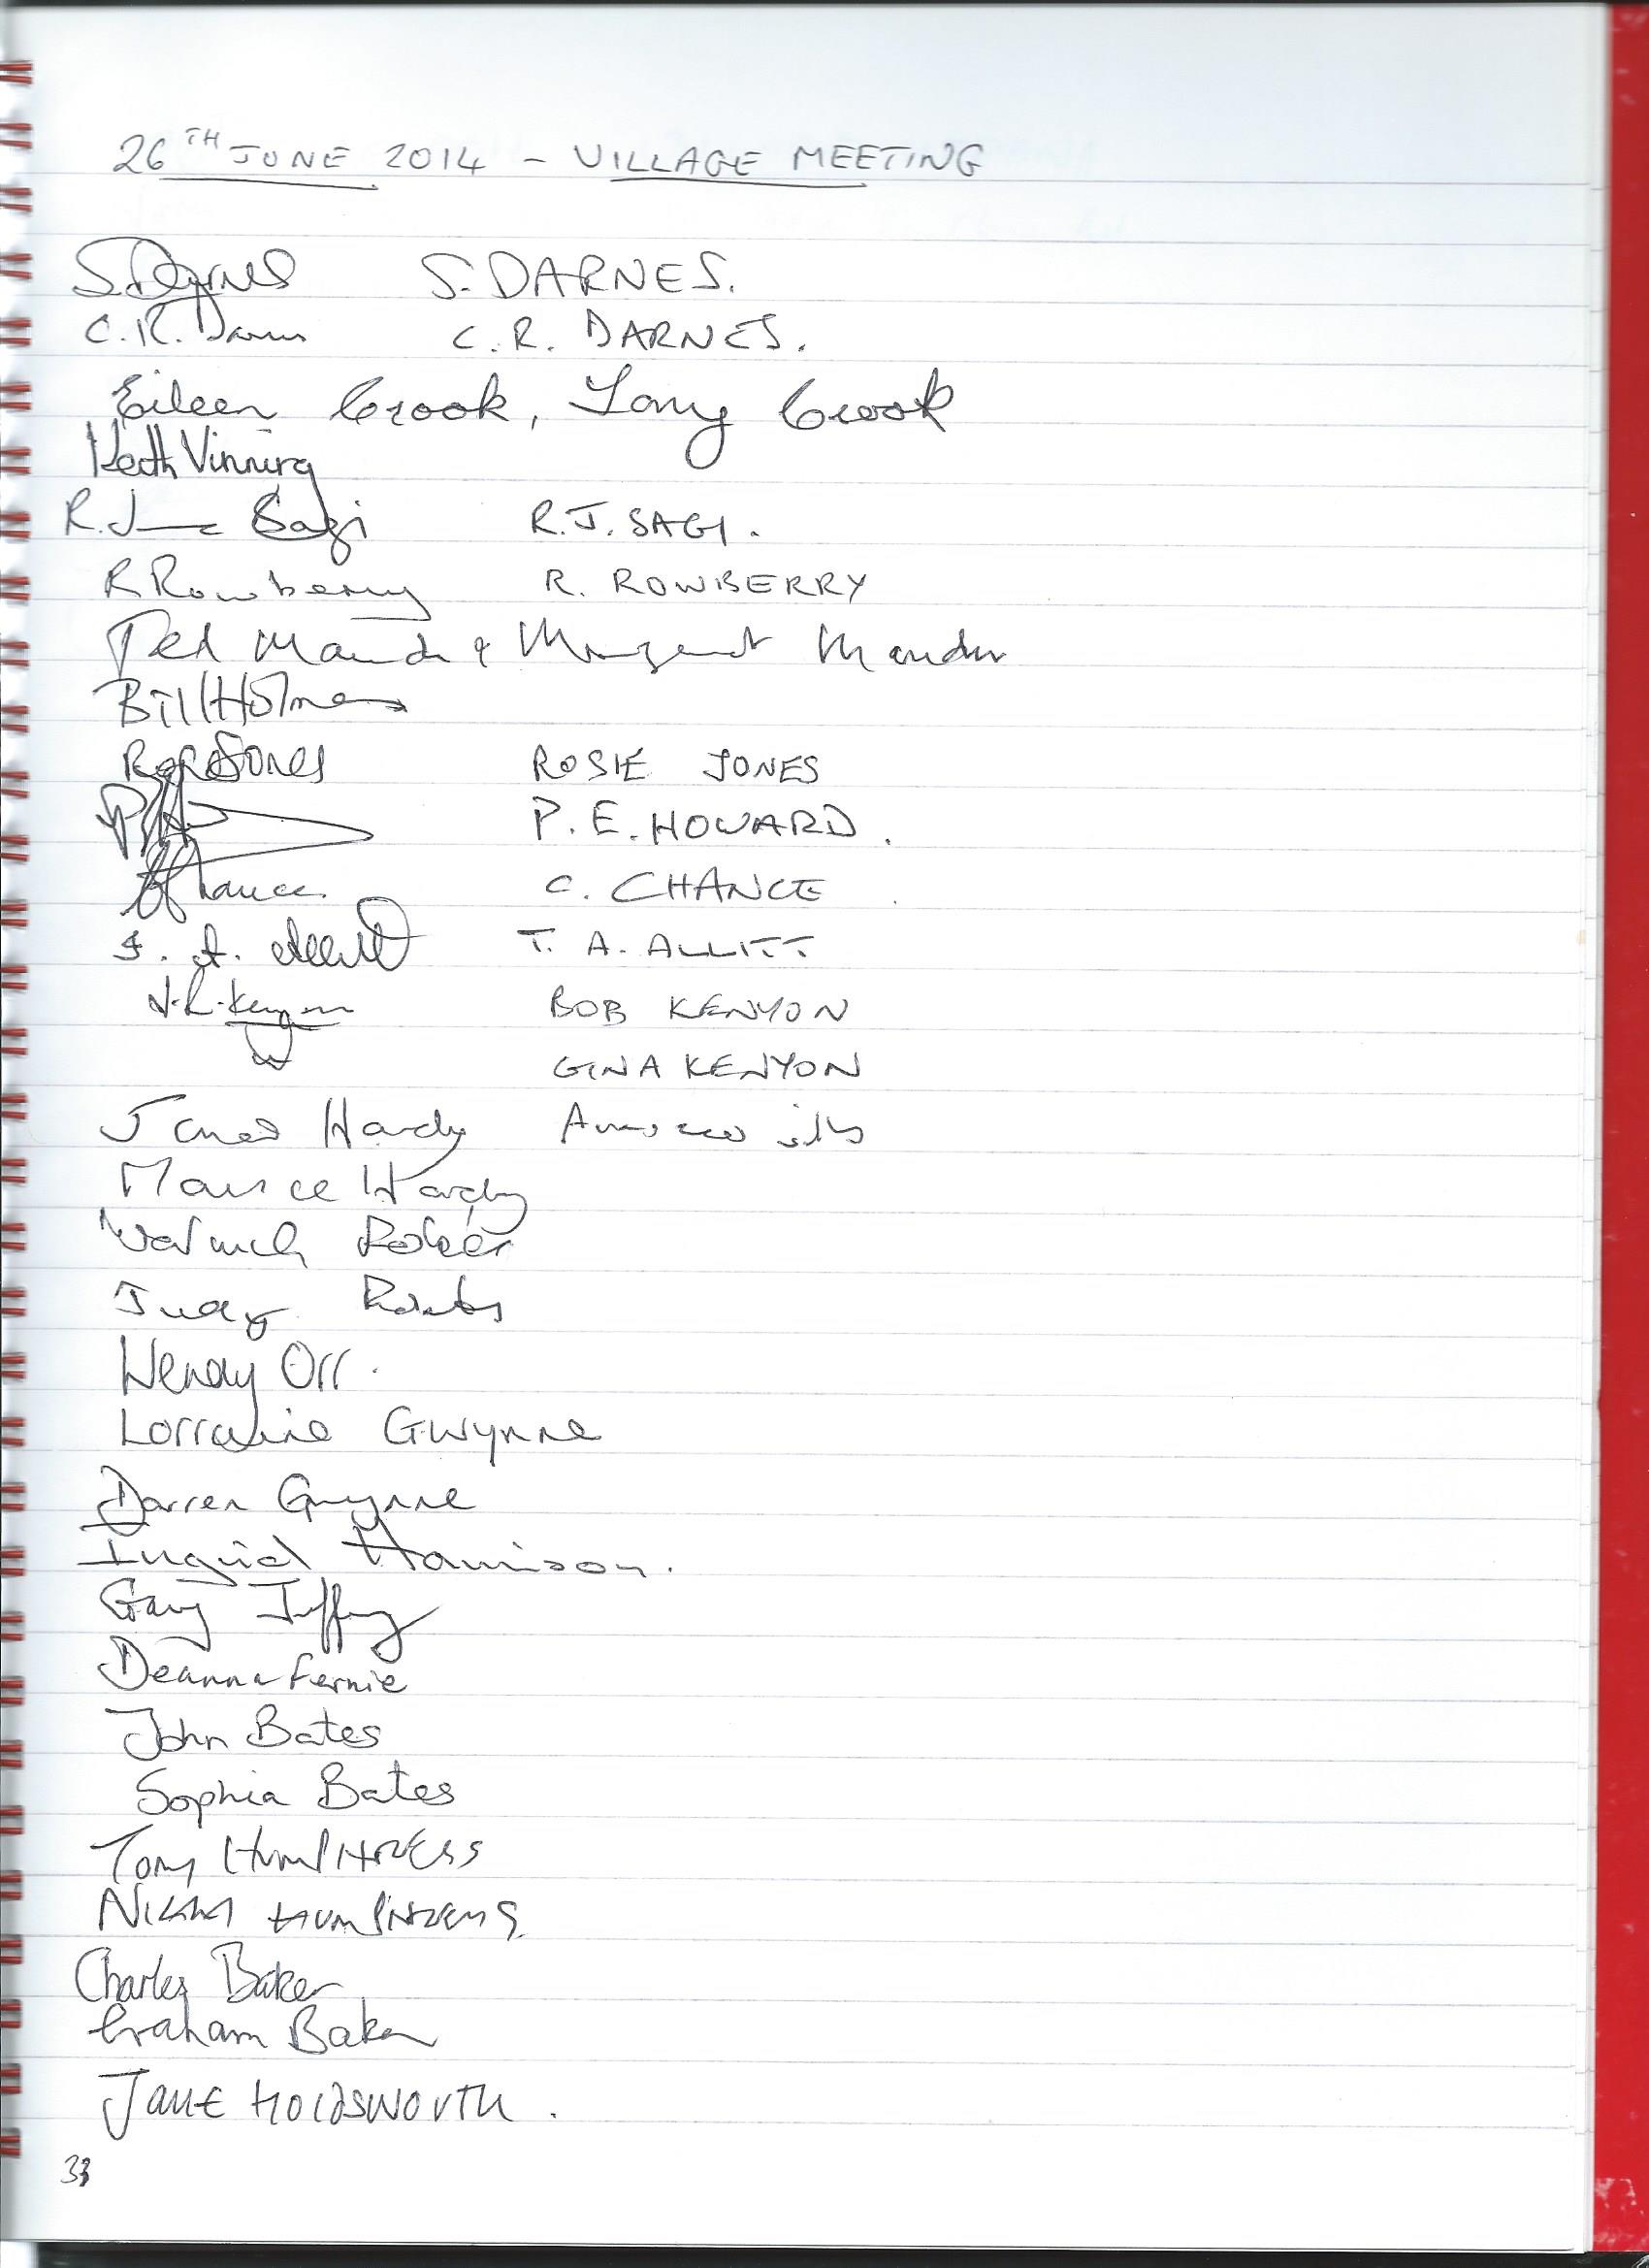 26TH JUNE 2014 - VILLAGE MEETING
S. Darnes S. DARNES.
C. R. Darnes C. R. DARNES.
Eileen Crook, Tony Crook
Keith Vinning
R. J Sagi R.J. SAGI.
R Rowberry R. ROWBERRY
Ted Mander & Margaret Mander
Bill Holmes
Jones ROSIE JONES
P. E. HOWARD.
Chance C. CHANCE
T. A. Allitt T. A. ALLITT
J.R. Kenyon BOB KENYON
GINA KENYON
James Hardy
Maurice Hardy
Warwick
Judy
Wendy Orr.
Lorraine Gwynne
Darren Gwynne
Ingrid Harrison.
Gary Jeffrey
Deanna Fernie
John Bates
Sophia Bates
Tony HUMPHRESS
NIKKI HUMPHRESS.
Charles Baker
Graham Baker
JANE HOLDSWORTH.
33